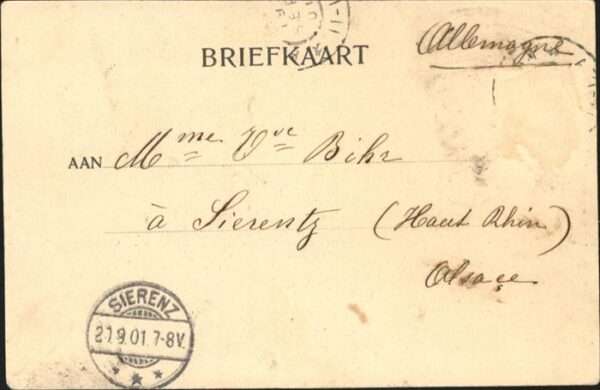 BRIEFKAART
Allemagne
AAN Mme Vve Bihr
à Sierentz (Haut Rhin)
Alsace
SIERENZ
21.9.01.7-8V.